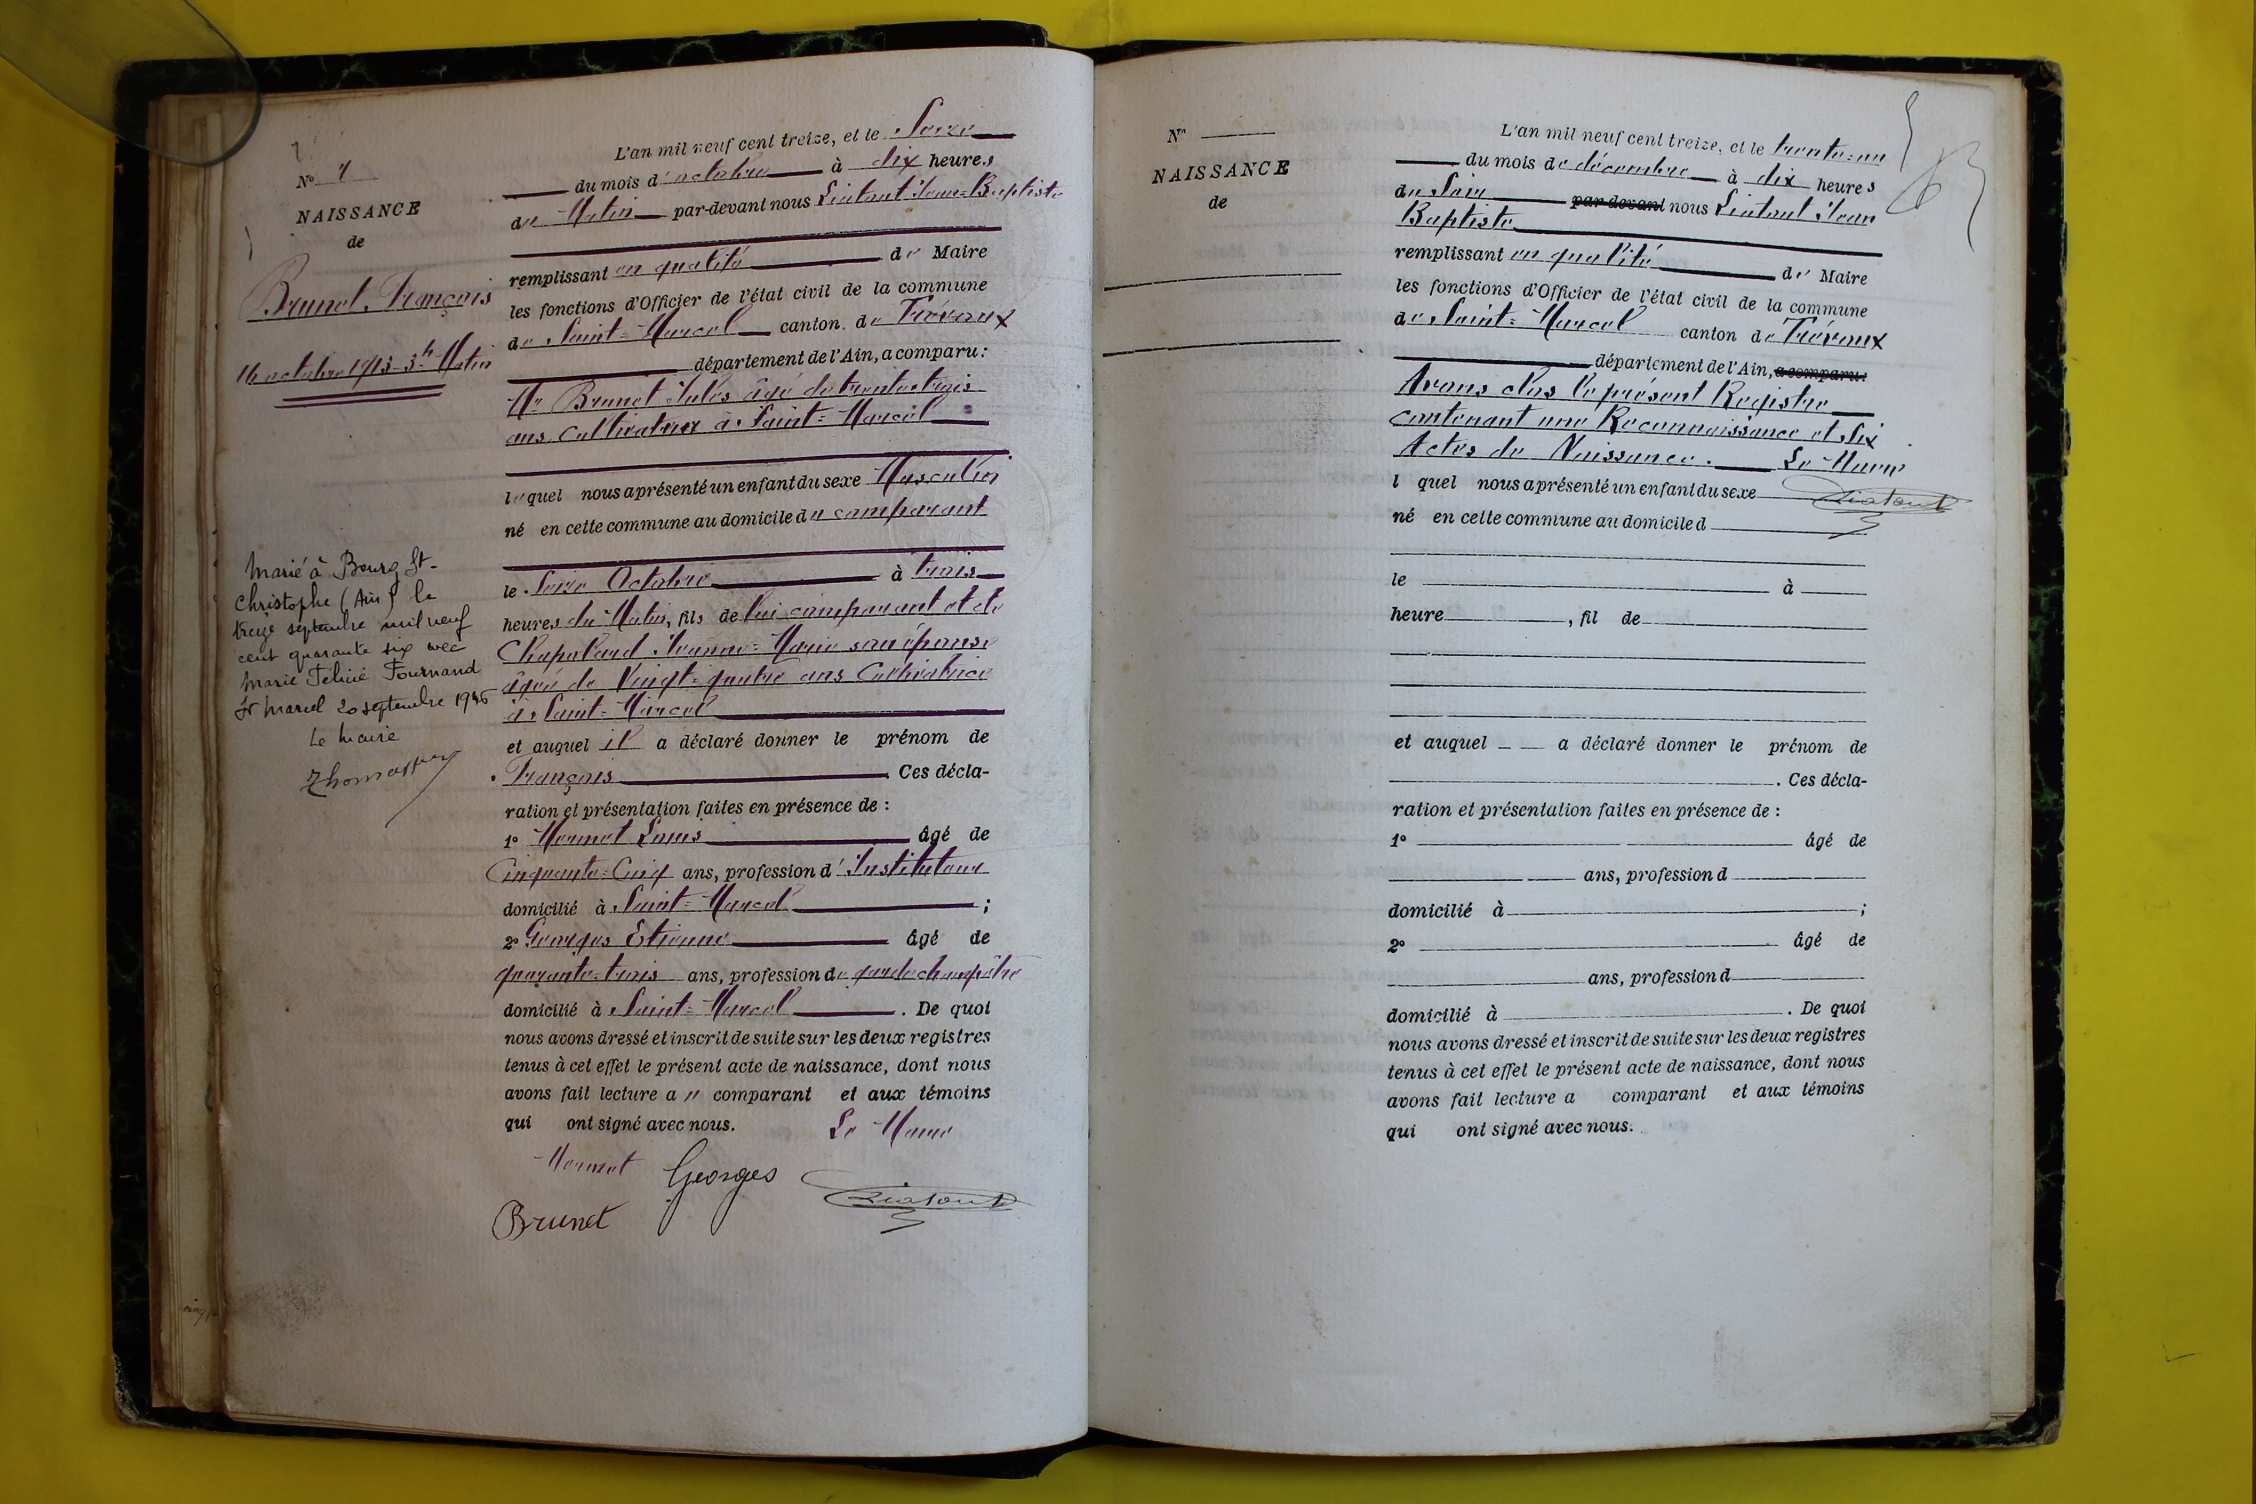 N° 7
NAISSANCE
de
Brunet François
16 octobre 1913 - 3h Matin
Marié à Bourg St-
Christophe (Ain) le
treize septembre mil neuf
cent quarante six avec
Marie Félicie Fournand
St Marcel 20 septembre 1946
Le Maire
L'an mil neuf cent treize, et le Seize
du mois d'octobre à dix heures
du Matin par-devant nous Liatout Jean=Baptiste
remplissant en qualité de Maire
les fonctions d'Officier de l'état civil de la commune
de Saint=Marcel canton de Trévoux
département de l'Ain, a comparu:
Mr Brunet Jules âgé de trente-trois
ans, Cultivateur à Saint=Marcel
lequel nous a présenté un enfant du sexe Masculin
né en cette commune au domicile du comparant
le Seize Octobre à trois
heures du Matin, fils de lui comparant et de
Chapeland Jeanne=Marie son épouse
âgée de Vingt=quatre ans Cultivatrice
à Saint=Marcel
et auquel il a déclaré donner le prénom de
François. Ces décla-
ration et présentation faites en présence de :
1° Mermet Louis âgé de
Cinquante=Cinq ans, profession d'Instituteur
domicilié à Saint=Marcel ;
2° Georges Etienne âgé de
quarante=trois ans, profession de garde champêtre
domicilié à Saint=Marcel. De quoi
nous avons dressé et inscrit de suite sur les deux registres
tenus à cet effet le présent acte de naissance, dont nous
avons fait lecture au comparant et aux témoins
qui ont signé avec nous. Le Maire
Mermet Georges Liatout
Brunet
N°
NAISSANCE
de
L'an mil neuf cent treize, et le trente=un
du mois de décembre à dix heures
du Soir par-devant nous Liatout Jean
Baptiste
remplissant en qualité de Maire
les fonctions d'Officier de l'état civil de la commune
de Saint=Marcel canton de Trévoux
département de l'Ain, a comparu:
Avons clos le présent Registre
contenant une Reconnaissance et Six
Actes de Naissance. Le Maire
l quel nous a présenté un enfant du sexe Liatout
né en cette commune au domicile d
le à
heure , fil de
et auquel a déclaré donner le prénom de
. Ces décla-
ration et présentation faites en présence de :
1° âgé de
ans, profession d
domicilié à ;
2° âgé de
ans, profession d
domicilié à . De quoi
nous avons dressé et inscrit de suite sur les deux registres
tenus à cet effet le présent acte de naissance, dont nous
avons fait lecture a comparant et aux témoins
qui ont signé avec nous.